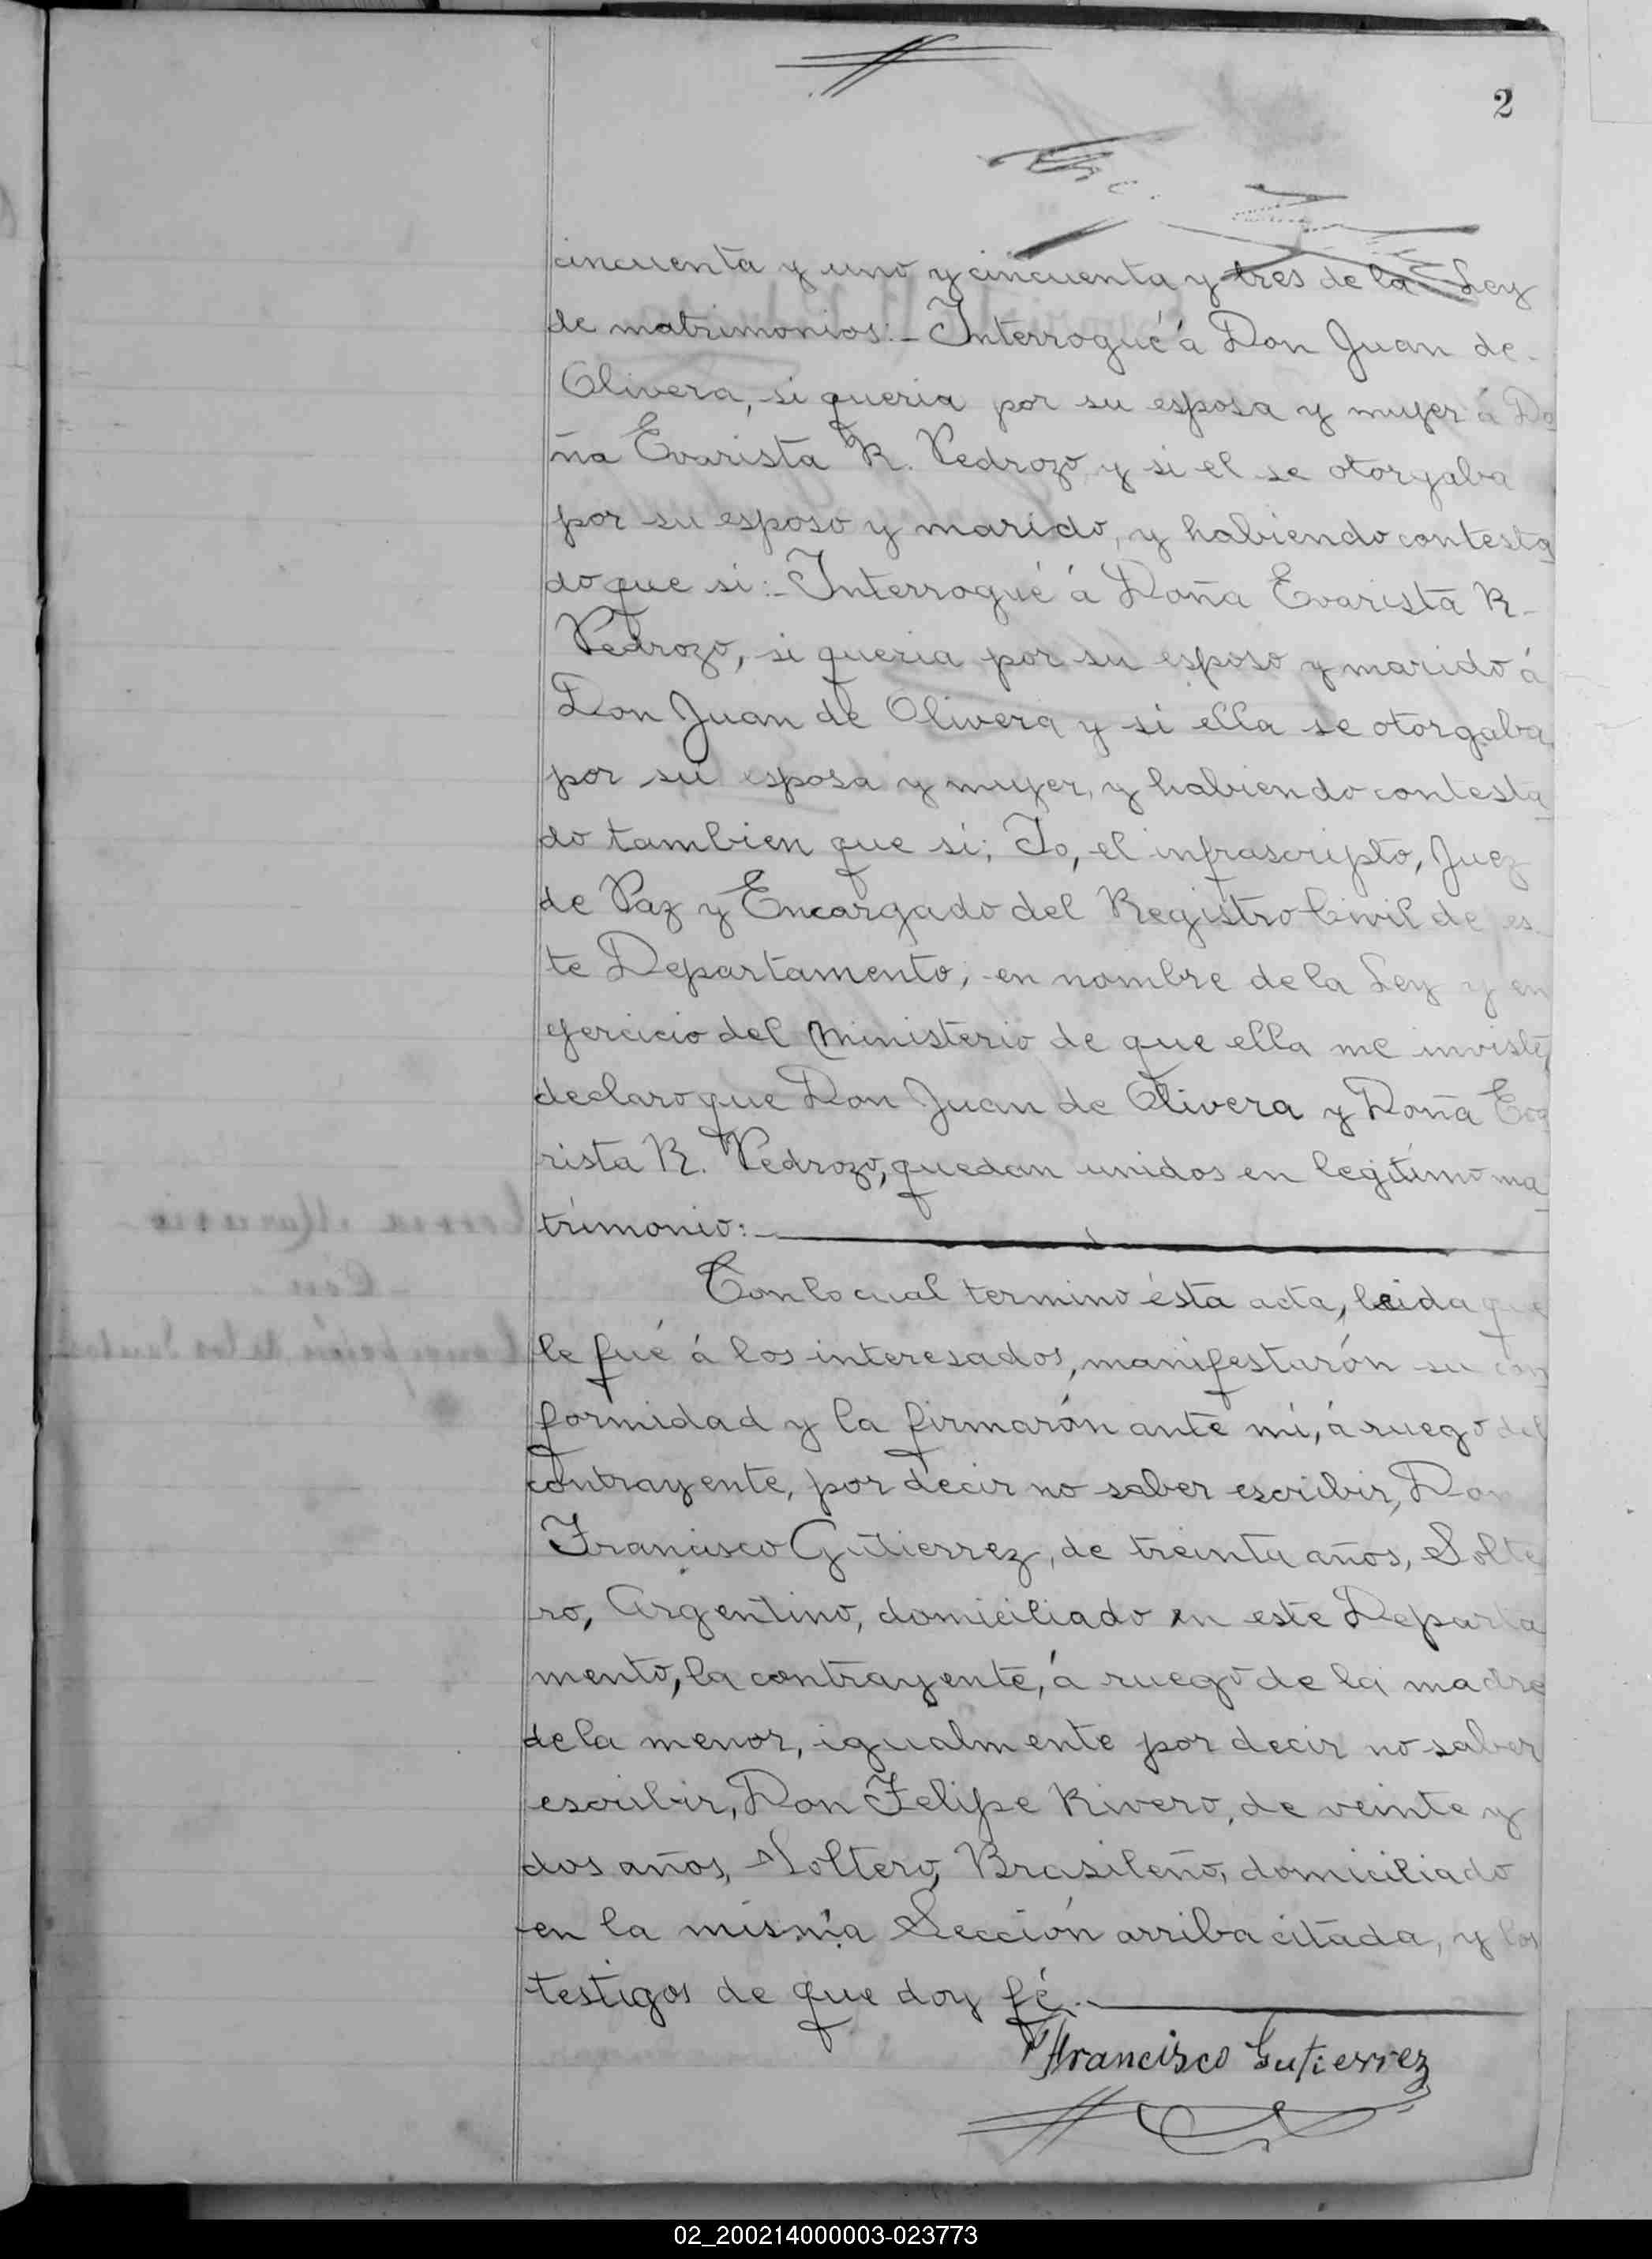 2
cincuenta y uno y cincuenta y tres de la Ley
de matrimonios:- Interrogué á Don Juan de-
Olivera, si queria por su esposa y mujer á Do
ña Evarista R. Pedrozo y si el se otorgaba
por su esposo y marido, y habiendo contesta
do que si:- Interrogué á Doña Evarista R-
Pedrozo, si queria por su esposo y marido á
Don Juan de Olivera y si ella se otorgaba
por su esposa y mujer, y habiendo contesta
do tambien que si; Io, el infrascripto, Juez
de Paz y Encargado del Registro Civil de es
te Departamento, en nombre de la Ley y en
ejercicio del Ministerio de que ella me inviste,
declaro que Don Juan de Olivera y Doña Eva
rista R. Pedrozo, quedan unidos en legitimo ma
trimonio:-
Con lo cual termino ésta acta, leida que
le fué á los interesados, manifestarón su con
formidad y la firmarón ante mi, á ruego del
contrayente, por decir no saber escribir, Don
Francisco Gutierrez, de treinta años, Solte
ro, Argentino, domiciliado en este Departa
mento, la contrayente, á ruego de la madre
de la menor, igualmente por decir no saber
escribir, Don Felipe Rivero, de veinte y
dos años, Soltero, Brasileño, domiciliado
en la misma Sección arriba citada, y los
testigos de que doy fé.-
Francisco Gutierrez
02_200214000003-023773